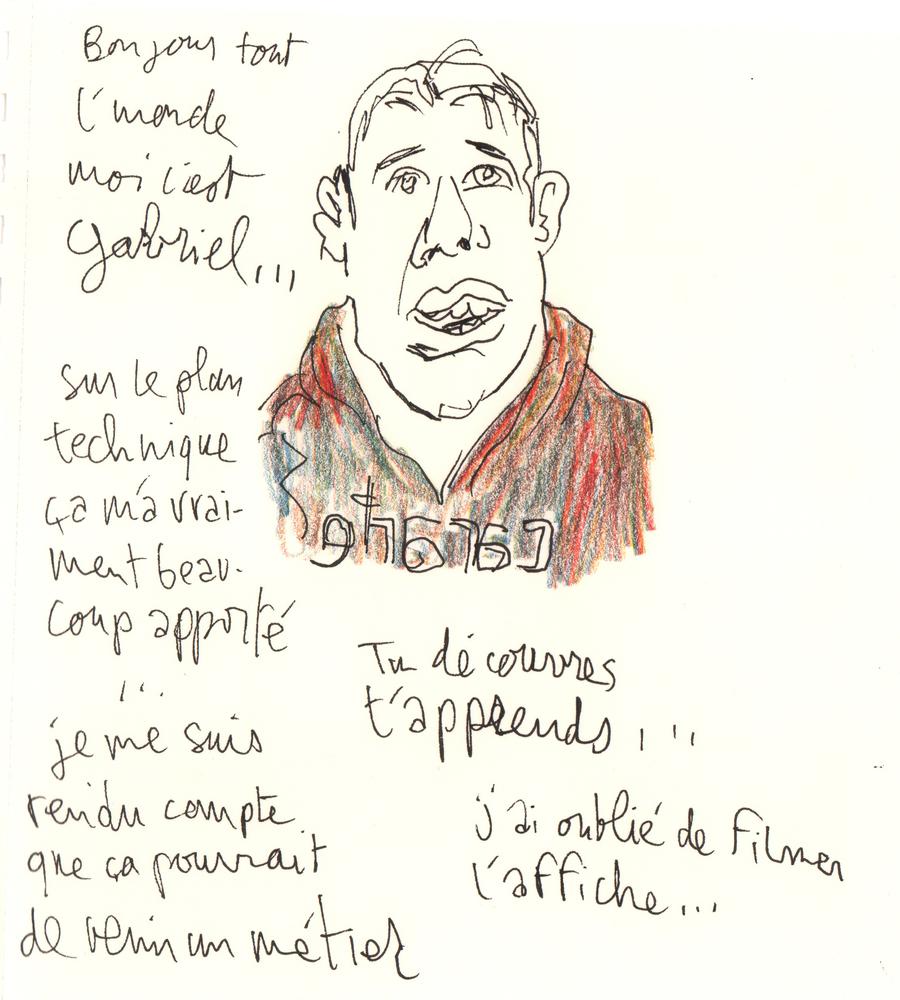 Bonjour tout
l'monde
moi c'est
Gabriel...
sur le plan
technique
ça m'a vrai-
ment beau-
coup apporté
...
je me suis
rendu compte
que ça pourrait
devenir un métier
Tu découvres
t'apprends...
j'ai oublié de filmer
l'affiche...